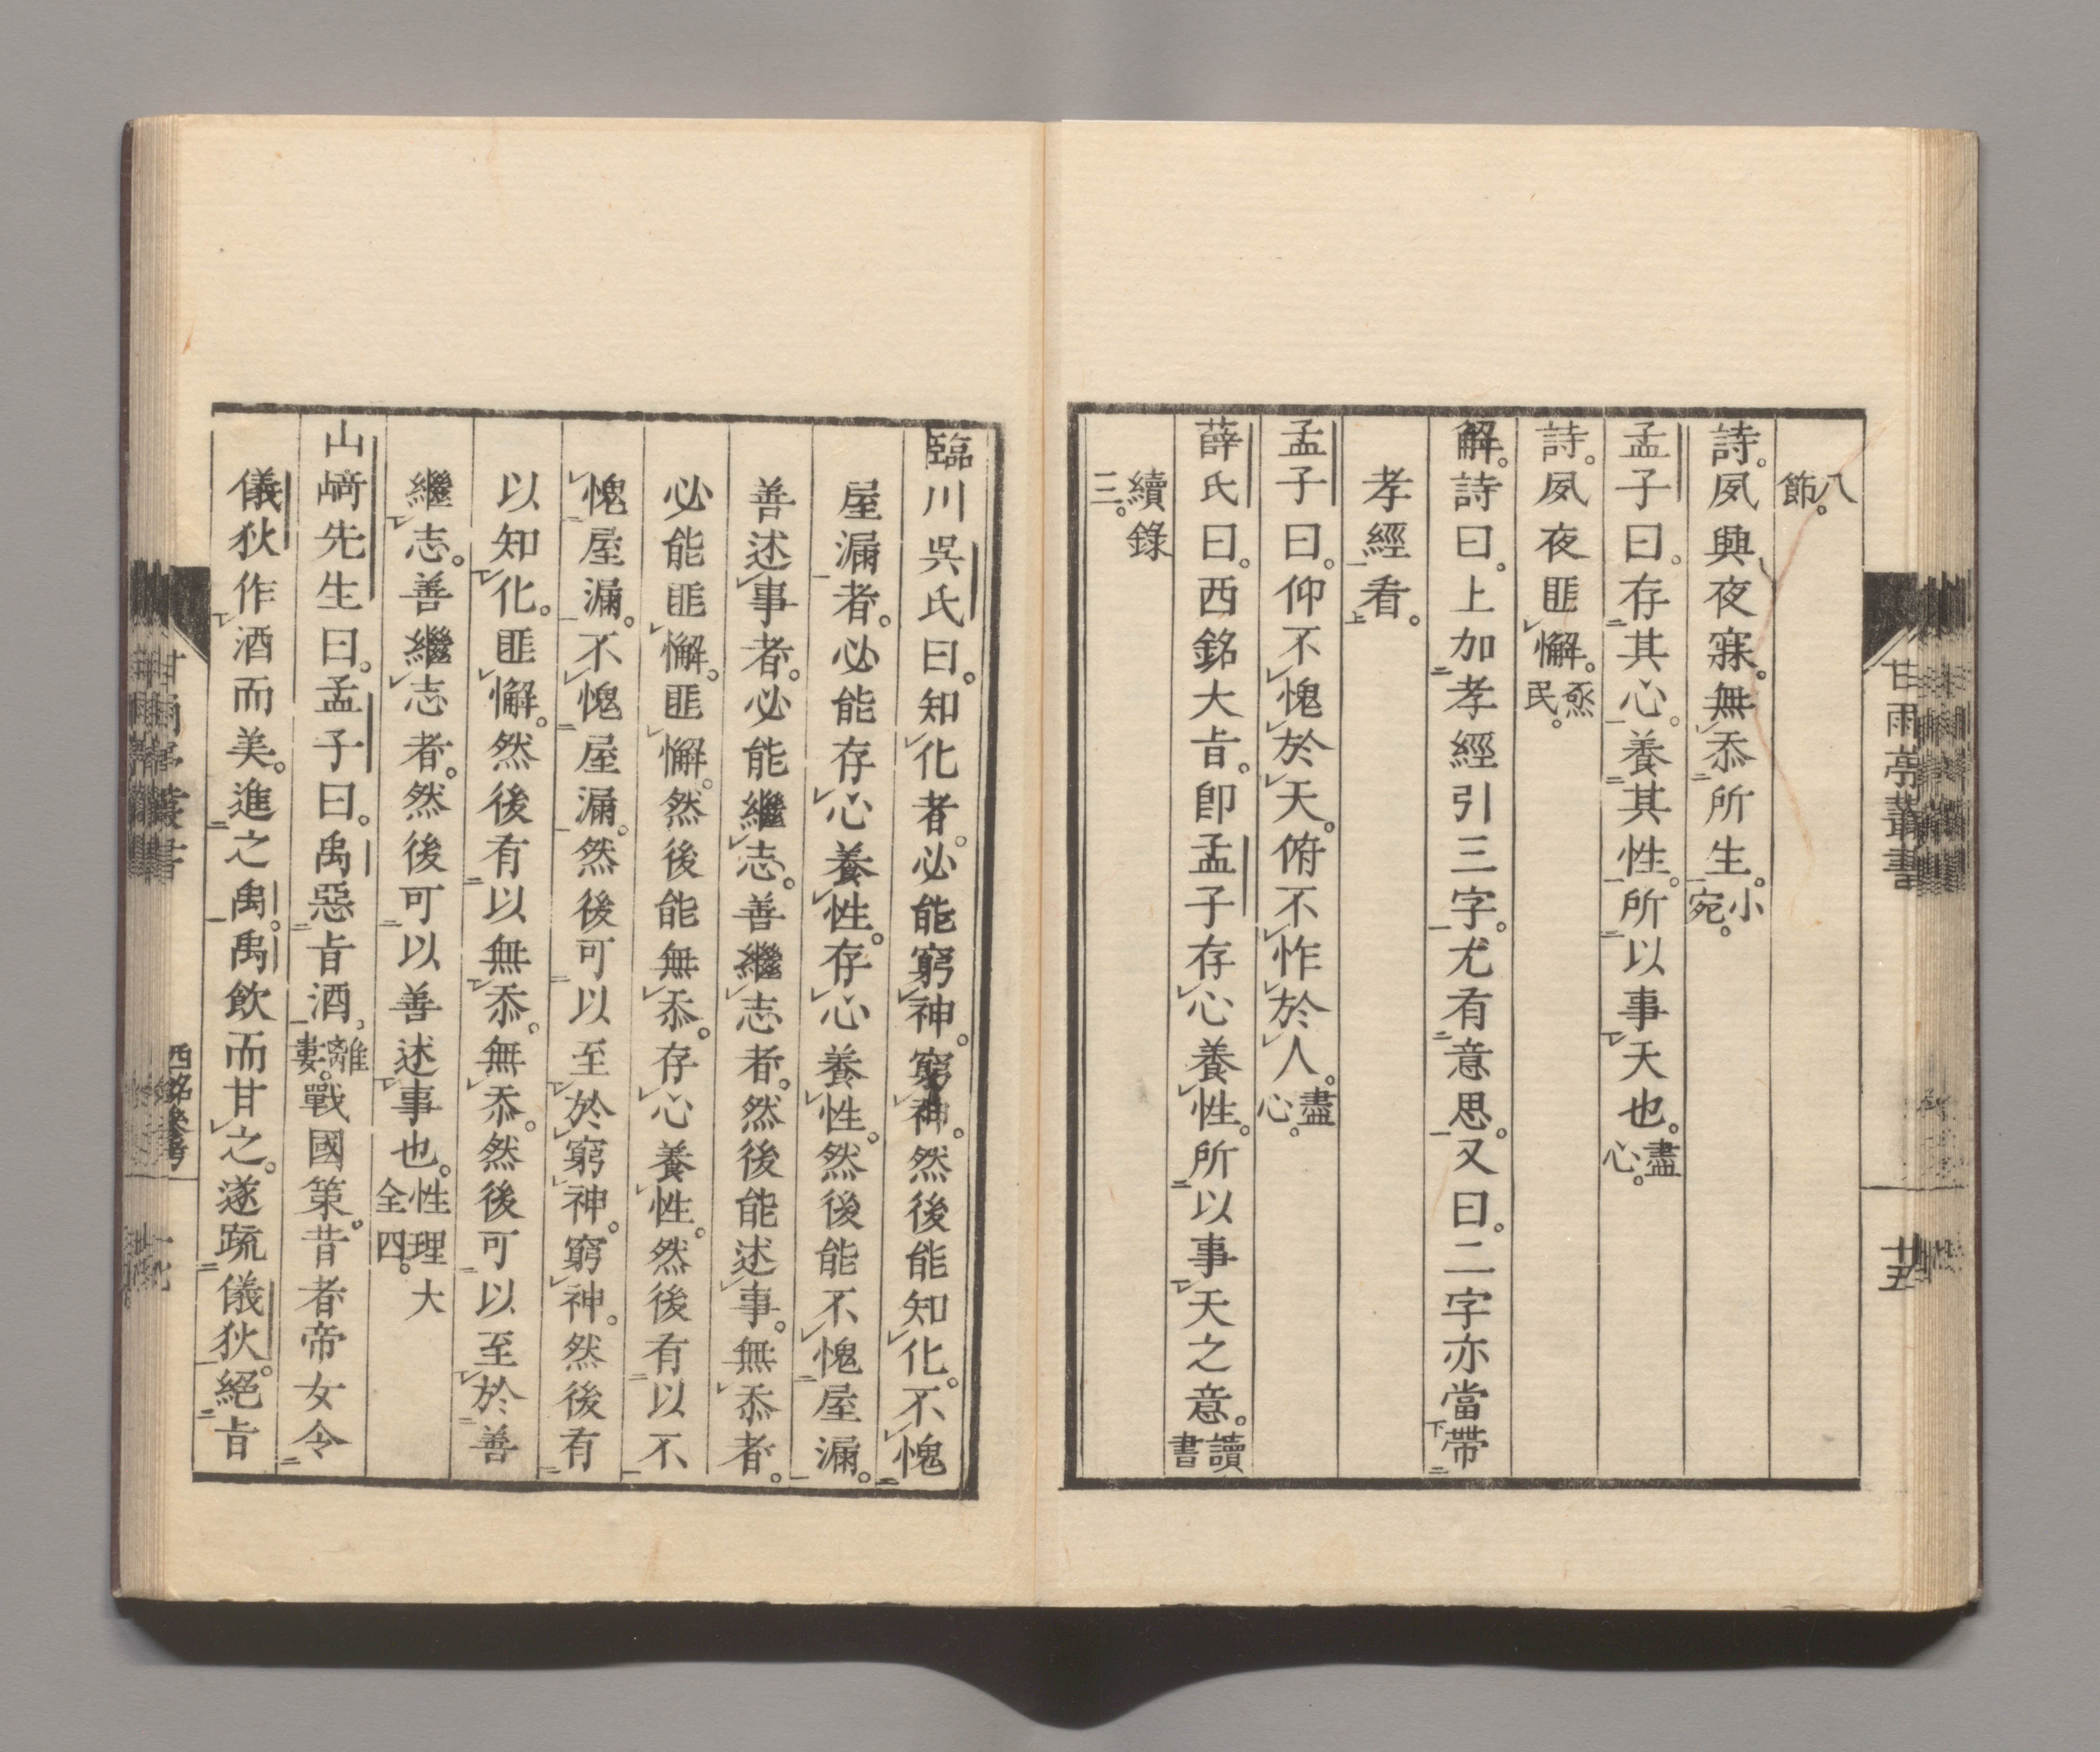 甘雨亭叢書
廿五
八飾。
詩。夙興夜寐。無忝所生。小宛。
孟子曰。存其心。養其性。所以事天也。盡心。
詩。夙夜匪懈。烝民。
解。詩曰。上加孝經引三字。尤有意思。又曰。二字亦當帶
孝經看。
孟子曰。仰不愧於天。俯不怍於人。盡心。
薛氏曰。西銘大旨。卽孟子存心養性。所以事天之意。讀書
續錄三。
臨川吳氏曰。知化者。必能窮神。窮神。然後能知化。不愧
屋漏者。必能存心養性。存心養性。然後能不愧屋漏。
善述事者。必能繼志。善繼志者。然後能述事。無忝者。
必能匪懈。匪懈。然後能無忝。存心養性。然後有以不
愧屋漏。不愧屋漏。然後可以至於窮神。窮神。然後有
以知化。匪懈。然後有以無忝。無忝。然後可以至於善
繼志。善繼志者。然後可以善述事也。性理大全四。
山﨑先生曰。孟子曰。禹惡旨酒。離婁。戰國策。昔者帝女令
儀狄作酒而美。進之禹。禹飲而甘之。遂疏儀狄。絕旨
西銘參考